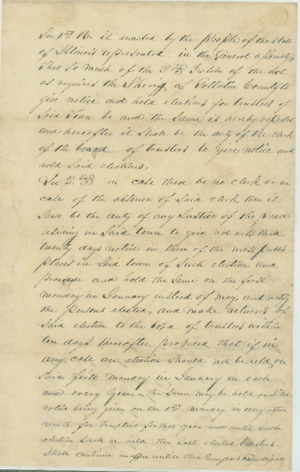 Sec 1st Be it enacted by the People of the State
of Illinois represented in the General Assembly
That so much of the 3rd Section of the Act
as requires the Sheriff of Gallatin County to
give notice and hold elections for trustees of
said Town be and the same is hereby repealed
and hereafter it shall be the duty of the clerk
of the board of trustees to give notice and
hold said elections.
Sec 2nd in case there be no clerk or in
case of the absence of said clerk then it
shall be the duty of any Justice of the Peace
residing in said town to give not less than
twenty days notice in three of the most public
places in said town of such election and
and hold the same on the first
monday in January instead of may, and notify
the persons elected, and make returns of
said election to the board of trustees within
ten days thereafter provided that if in
any case an election should not be held on
said first monday in January in each
and every year, the same may be held on like
notice being given on the 1st monday in any other
month for trustees for that year and until such
election shall be held the last elected trustees
shall continue in office